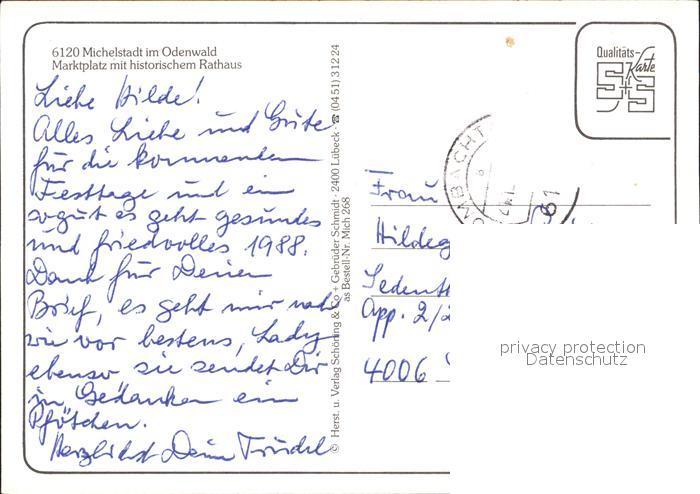 6120 Michelstadt im Odenwald
Marktplatz mit historischem Rathaus
Liebe Hilde!
Alles Liebe und Gute
für die kommenden
Festtage und ein
sogut es geht gesundes
und friedvolles 1988.
Dank für Deinen
Brief, es geht mir nach
wie vor bestens, Lady
ebenso sie sendet Dir
in Gedanken ein
Pfötchen.
Herzlichst Deine Trudel
© Herst. u. Verlag Schöning & Co + Gebrüder Schmidt · 2400 Lübeck · ☎ (0451) 31224
as Bestell-Nr. Mich 268
Qualitäts-
Karte
S+S
OMBACHT
61
Frau
Hildeg
App. 2/2
4006
privacy protection
Datenschutz